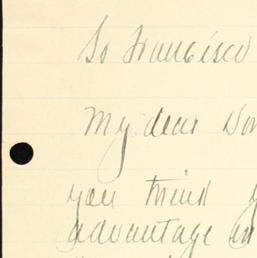 So Francisco
My dear
you think
advantage in